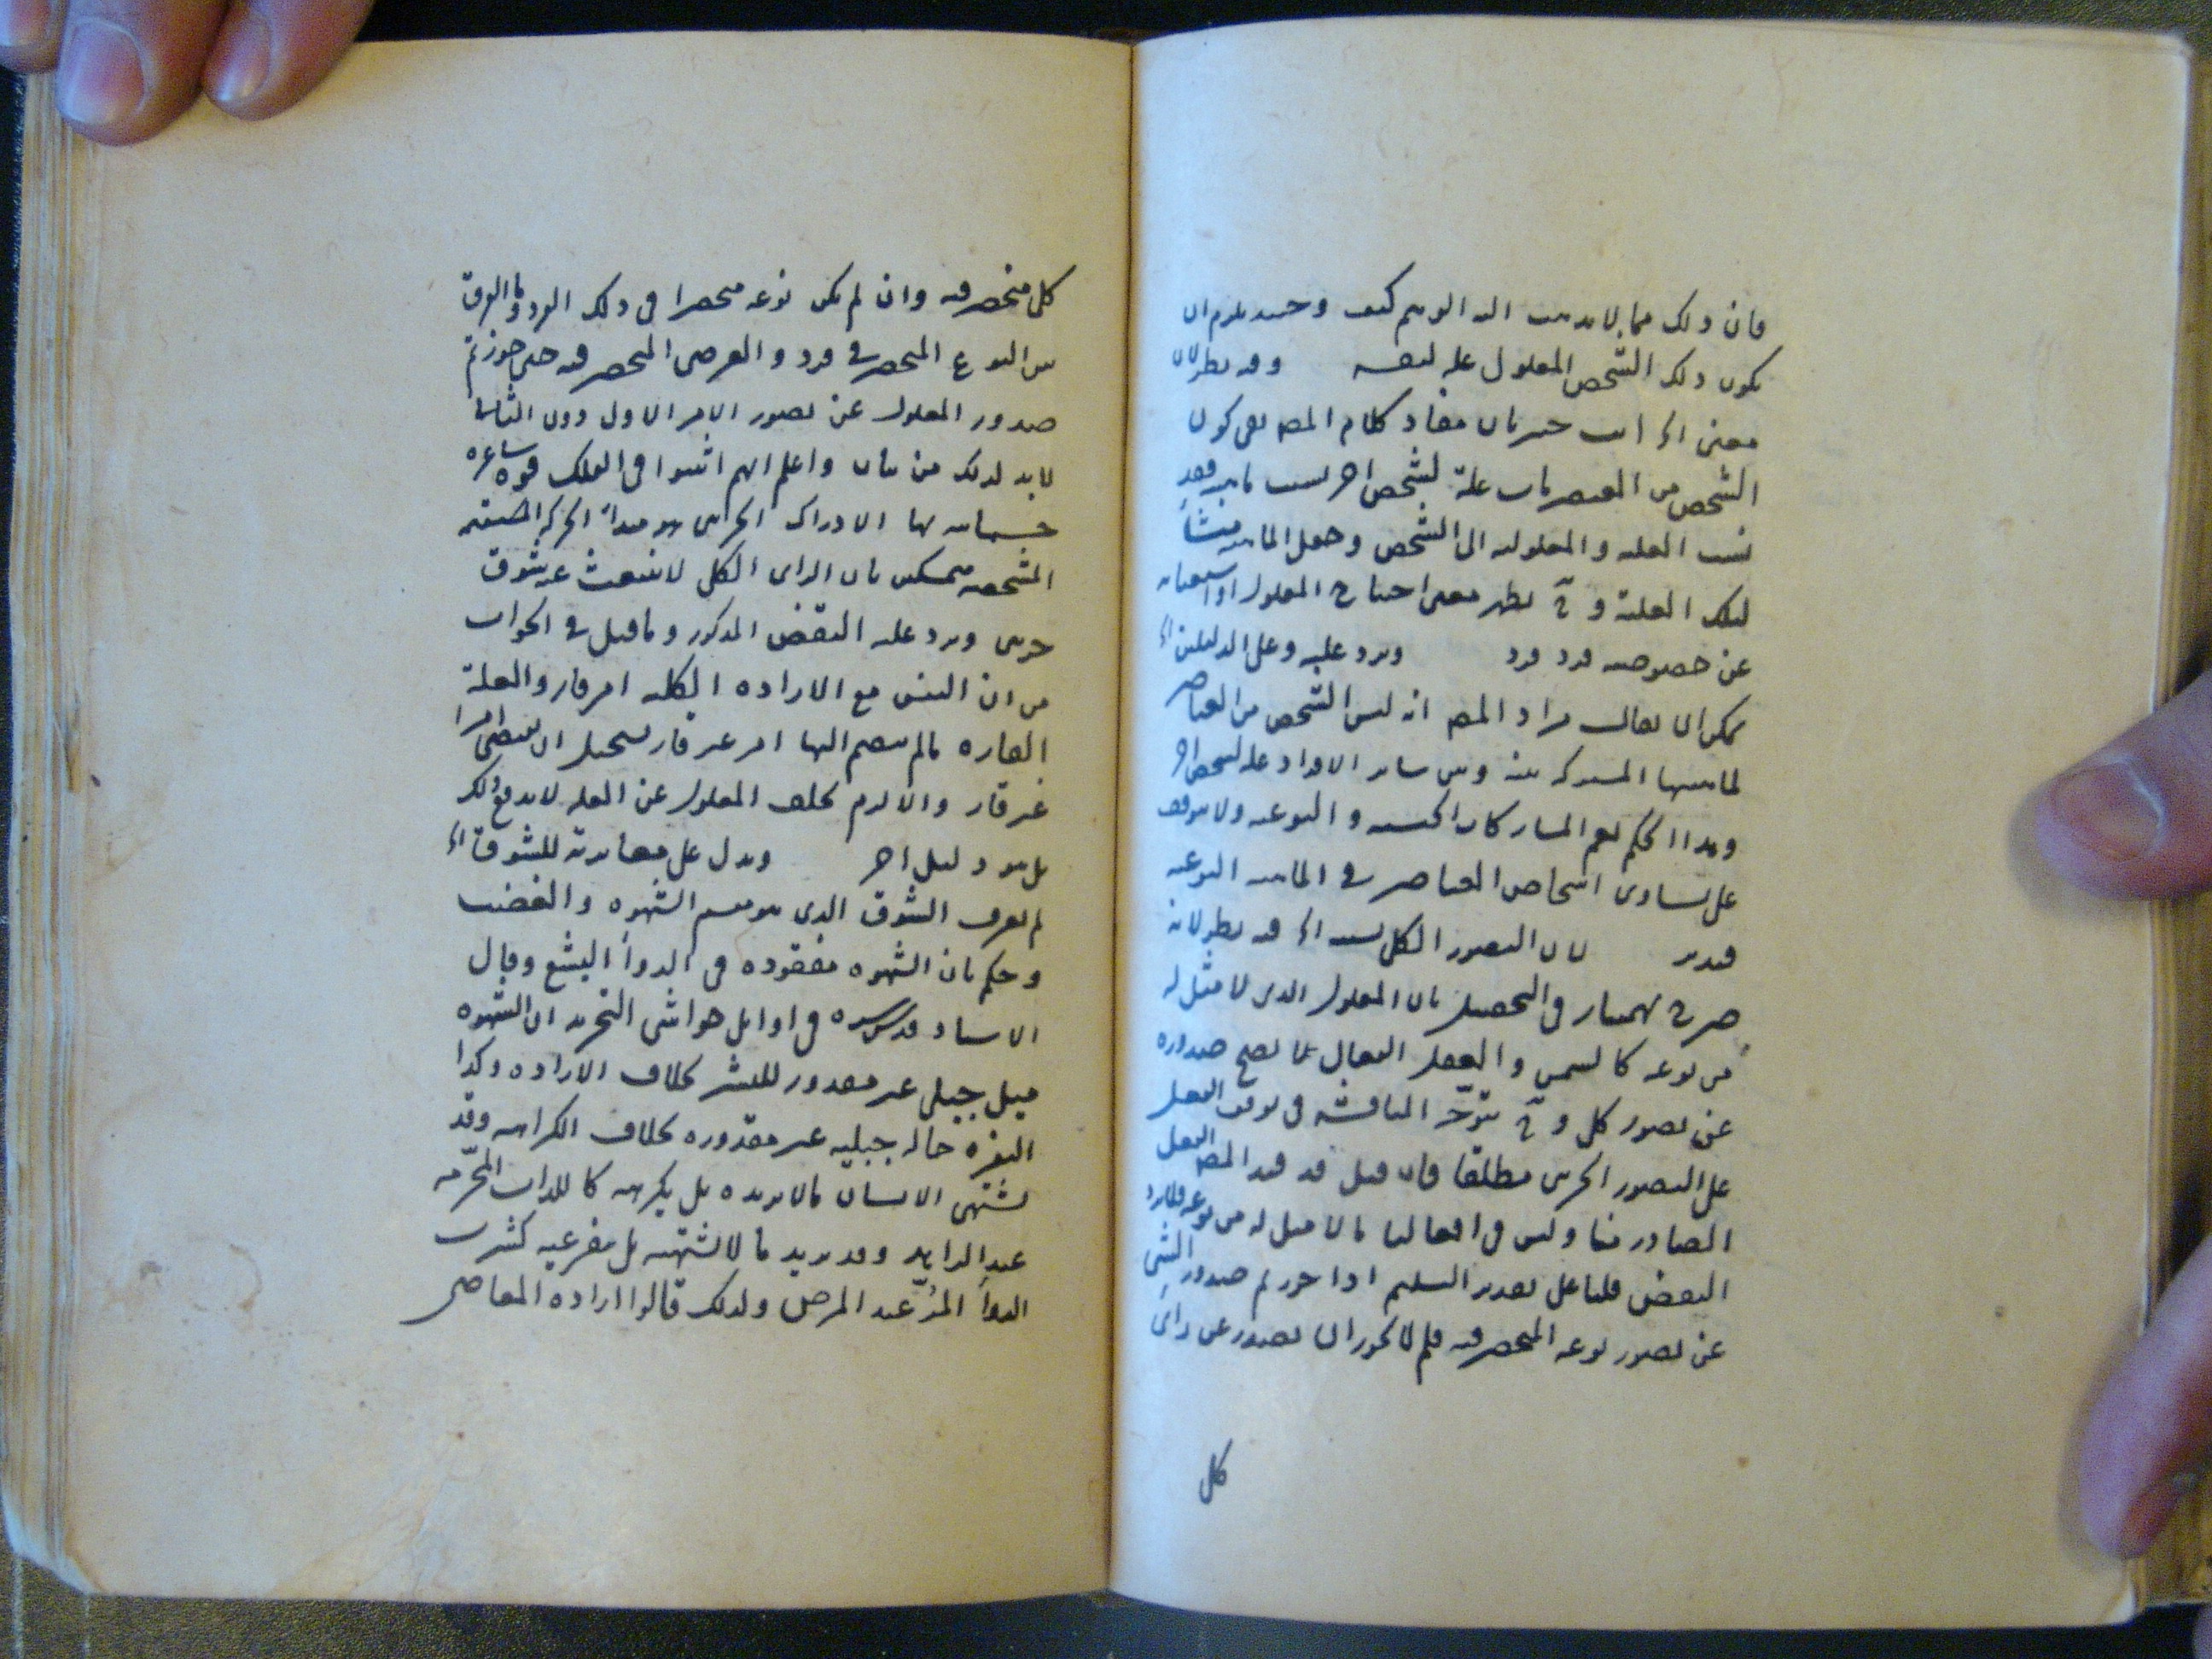 فان ذلك مما لا يذهب اليه الوهم كيف وحينئذ يلزم ان
يكون ذلك الشخص المعلول علة لنفسه وفيه نظر لان
معنى الخ انت خبير بان مفاد كلام المص نفي كون
الشخص من العنصريات علة لشخص اخر ليست فقد
نسب العلية والمعلولية الى الشخص وجعل الماهية منشأ
لتلك العلية و ح يظهر معنى احتياج المعلول او استغنائه
عن خصوصية فرد فرد ويرد عليه وعلى الدليلين الخ
يمكن ان يقال مراد المص انه ليس الشخص من العناصر
لماهيتها المشتركة بينه وبين سائر الافراد علة لشخص اخر
وهذا الحكم يعم المشاركات الجنسية والنوعية ولا يتوقف
على تساوى اشخاص العناصر في الماهية النوعية
فتدبر لان التصور الكلي نسبته الخ فيه نظر لانه
صرح بهمنيار في التحصيل بان المعلول الذي لا مثل له
من نوعه كالشمس والعقل الفعال مما يصح صدوره
عن تصور كلي و ح يتوجه المناقشة في توقف الفعل
على التصور الجزئي مطلقا فان قيل قد قيد المص الفعل
الصادر منا وليس في افعالنا ما لا مثل له من نوعه فلا يرد
النقض قلنا على تقدير التسليم اذا جوزتم صدور الشئ
عن تصور نوعه المنحصر فيه فلم لا يجوز ان يصدر عن راى
كلي
كلي منحصر فيه وان لم يكن نوعه منحصرا في ذلك الفرد وما الفرق
بين النوع المنحصر في فرد والعرضي المنحصر فيه حتى جوزتم
صدور المعلول عن تصور الامر الاول دون الثاني
لا بد لذلك من بيان واعلم انهم اثبتوا في الفلك قوة شاعرة
جسمانية لها الادراك الجزئي هو مبدأ الحركة
المشخصة متمسكين بان الراى الكلي لا ينبعث عنه شوق
جزئي ويرد عليه النقض المذكور وما قيل في الجواب
من ان النفس مع الارادة الكلية امر قار والعلة
القارة ما لم ينضم اليها امر غير قار يستحيل ان يقتضي امرا
غير قار والا لزم تخلف المعلول عن العلة لا يدفع ذلك
بل هو دليل اخر ويدل على مغايرته للشوق الخ
لم يعرف الشوق الذي هو مقسم الشهوة والغضب
وحكم بان الشهوة مفقودة في الدواء البشع وقال
الاستاد قدس سره في اوايل حواشي التجريد ان الشهوة
ميل جبلي غير مقدور للبشر بخلاف الارادة وكذا
النفرة حالة جبلية غير مقدورة بخلاف الكراهة وقد
يشتهي الانسان ما لا يريده بل يكرهه كاللذات المحرمة
عند الزاهد وقد يريد ما لا يشتهيه بل ينفر عنه كشرب
الدواء المر عند المرض ولذلك قالوا ارادة المعاصي